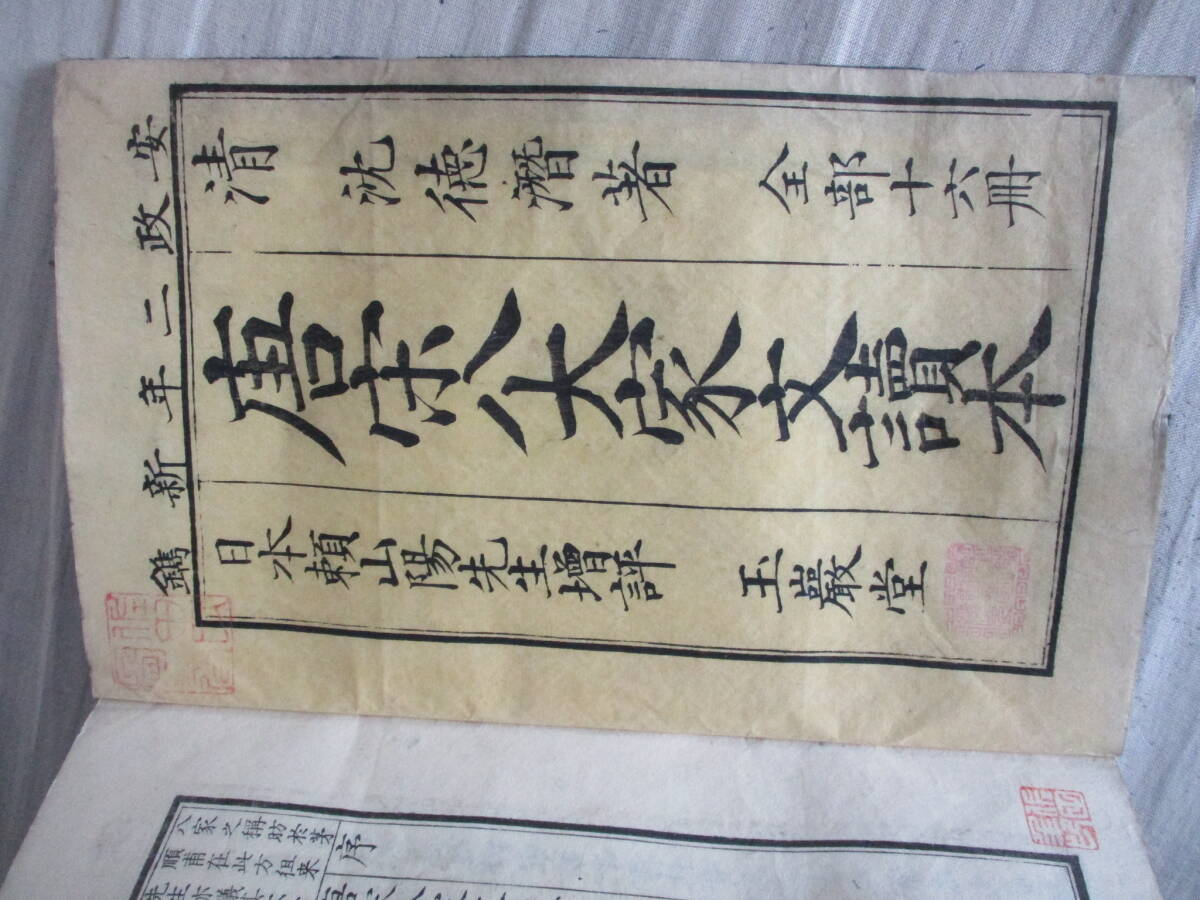 安政二年新鐫
清 沈德潛著 全部十六冊
唐宋八大家文讀本
日本賴山陽先生增評 玉巖堂
序
八家之稱昉於茅
順甫在此方徂來